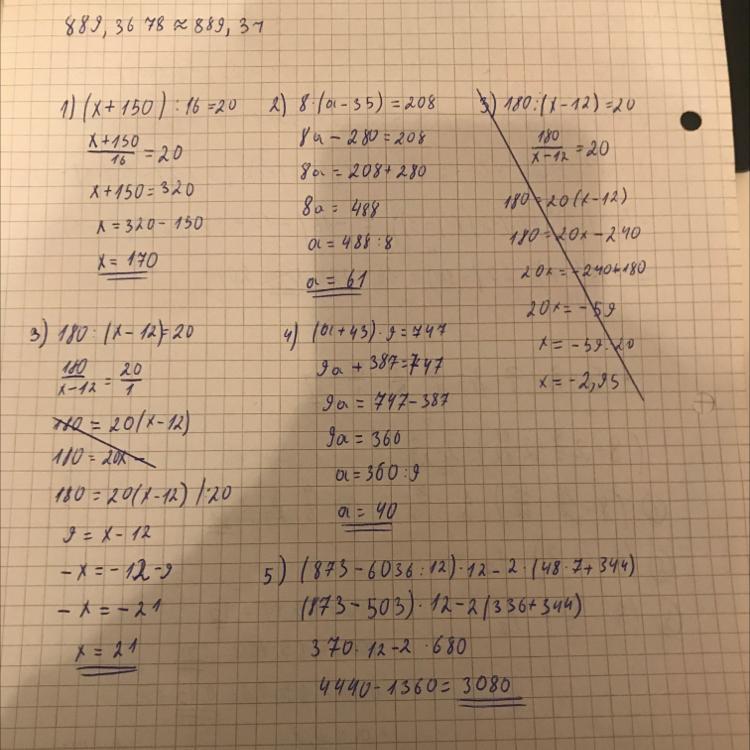 889,3678 ≈ 889,37
1) (x+150) : 16 = 20
x+150/16 = 20
x+150 = 320
x = 320 - 150
x = 170
2) 8·(a-35) = 208
8a - 280 = 208
8a = 208 + 280
8a = 488
a = 488 : 8
a = 61
3) 180 : (x-12) = 20
180/x-12 = 20
180 = 20(x-12)
180 = 20x - 240
20x = -240+180
20x = -59
x = -59:20
x = -2,95
3) 180 : (x-12) = 20
180/x-12 = 20/1
180 = 20(x-12)
180 = 20x -
180 = 20(x-12) /:20
9 = x - 12
-x = -12 -9
-x = -21
x = 21
4) (a+43)·9 = 747
9a + 387 = 747
9a = 747 - 387
9a = 360
a = 360 : 9
a = 40
5) (873 - 6036 : 12)·12 - 2·(48·7 + 344)
(873 - 503)·12 - 2(336 + 344)
370·12 - 2·680
4440 - 1360 = 3080